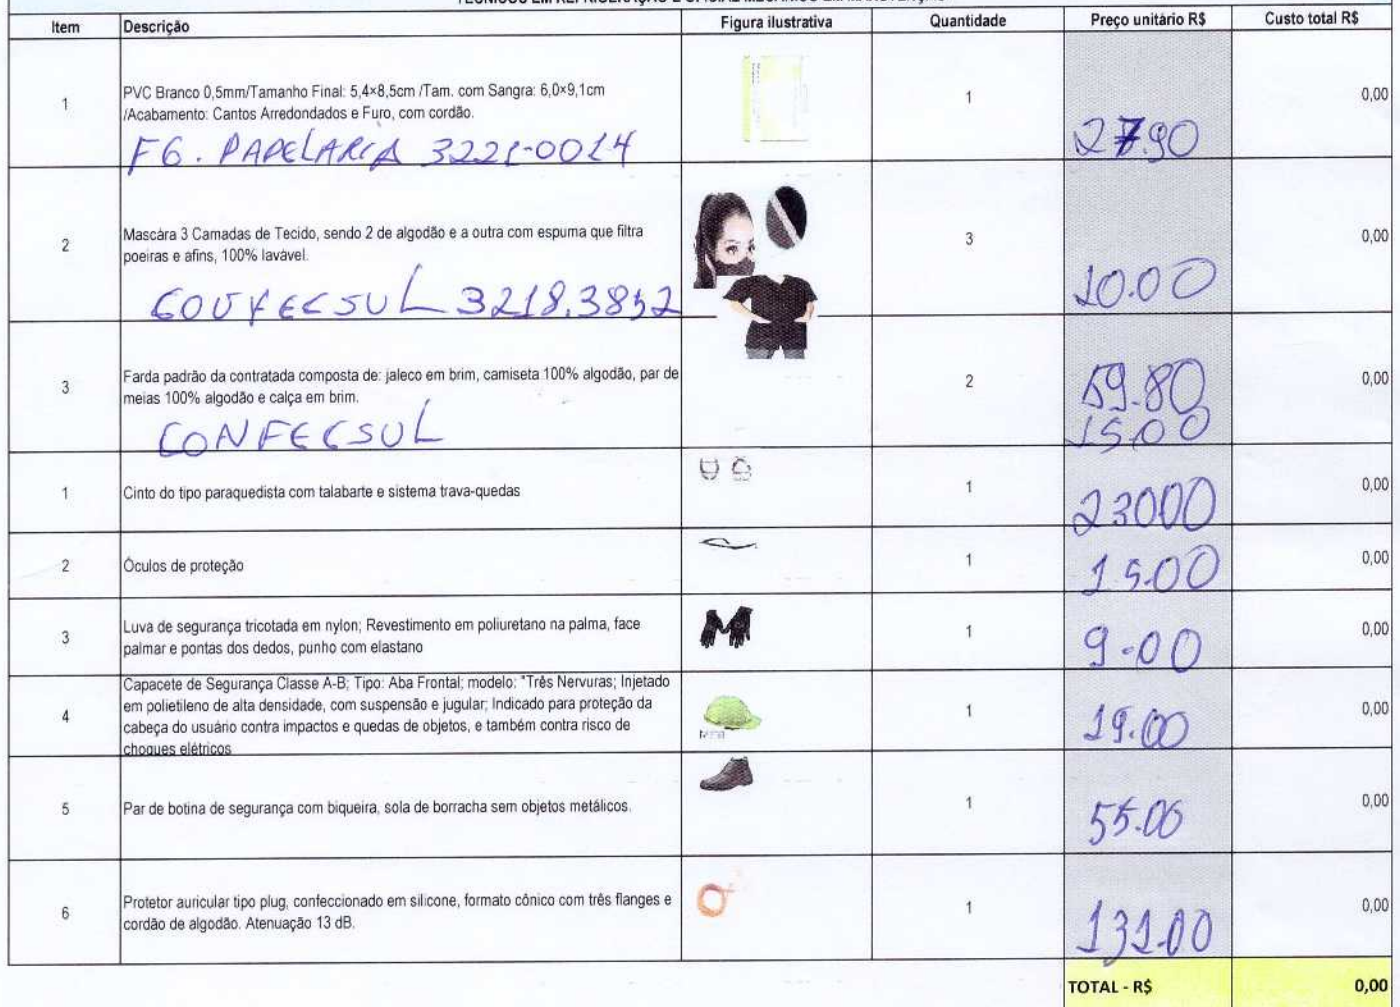 Item Descrição Figura ilustrativa Quantidade Preço unitário R$ Custo total R$
1 PVC Branco 0,5mm/Tamanho Final: 5,4×8,5cm /Tam. com Sangra: 6,0×9,1cm 1 0,00
/Acabamento: Cantos Arredondados e Furo, com cordão.
FG. PAPELARIA 3221-0014 27.90
2 Mascára 3 Camadas de Tecido, sendo 2 de algodão e a outra com espuma que filtra 3 0,00
poeiras e afins, 100% lavável.
CONFECSUL 3218.3852 10.00
3 Farda padrão da contratada composta de: jaleco em brim, camiseta 100% algodão, par de 2 59.80 0,00
meias 100% algodão e calça em brim.
CONFECSUL 15.00
1 Cinto do tipo paraquedista com talabarte e sistema trava-quedas 1 23000 0,00
2 Óculos de proteção 1 15.00 0,00
3 Luva de segurança tricotada em nylon; Revestimento em poliuretano na palma, face 1 9.00 0,00
palmar e pontas dos dedos, punho com elastano
Capacete de Segurança Classe A-B; Tipo: Aba Frontal; modelo: "Três Nervuras; Injetado
4 em polietileno de alta densidade, com suspensão e jugular; Indicado para proteção da 1 19.00 0,00
cabeça do usuário contra impactos e quedas de objetos, e também contra risco de
choques elétricos
5 Par de botina de segurança com biqueira, sola de borracha sem objetos metálicos. 1 55.00 0,00
6 Protetor auricular tipo plug, confeccionado em silicone, formato cônico com três flanges e 1 131.00 0,00
cordão de algodão. Atenuação 13 dB.
TOTAL - R$ 0,00